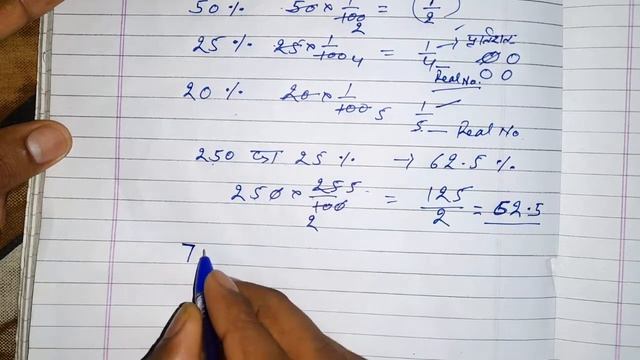 50 % 50 × 1/100 2 = 1/2
25 % 25 × 1/100 4 = 1/4 → प्रतिशत
0 0
Real No. 0 0
20 % 20 × 1/100 5 1/5 — Real No
250 का 25 % → 62.5 %
250 × 25 5/100 2 = 125/2 = 62.5
7